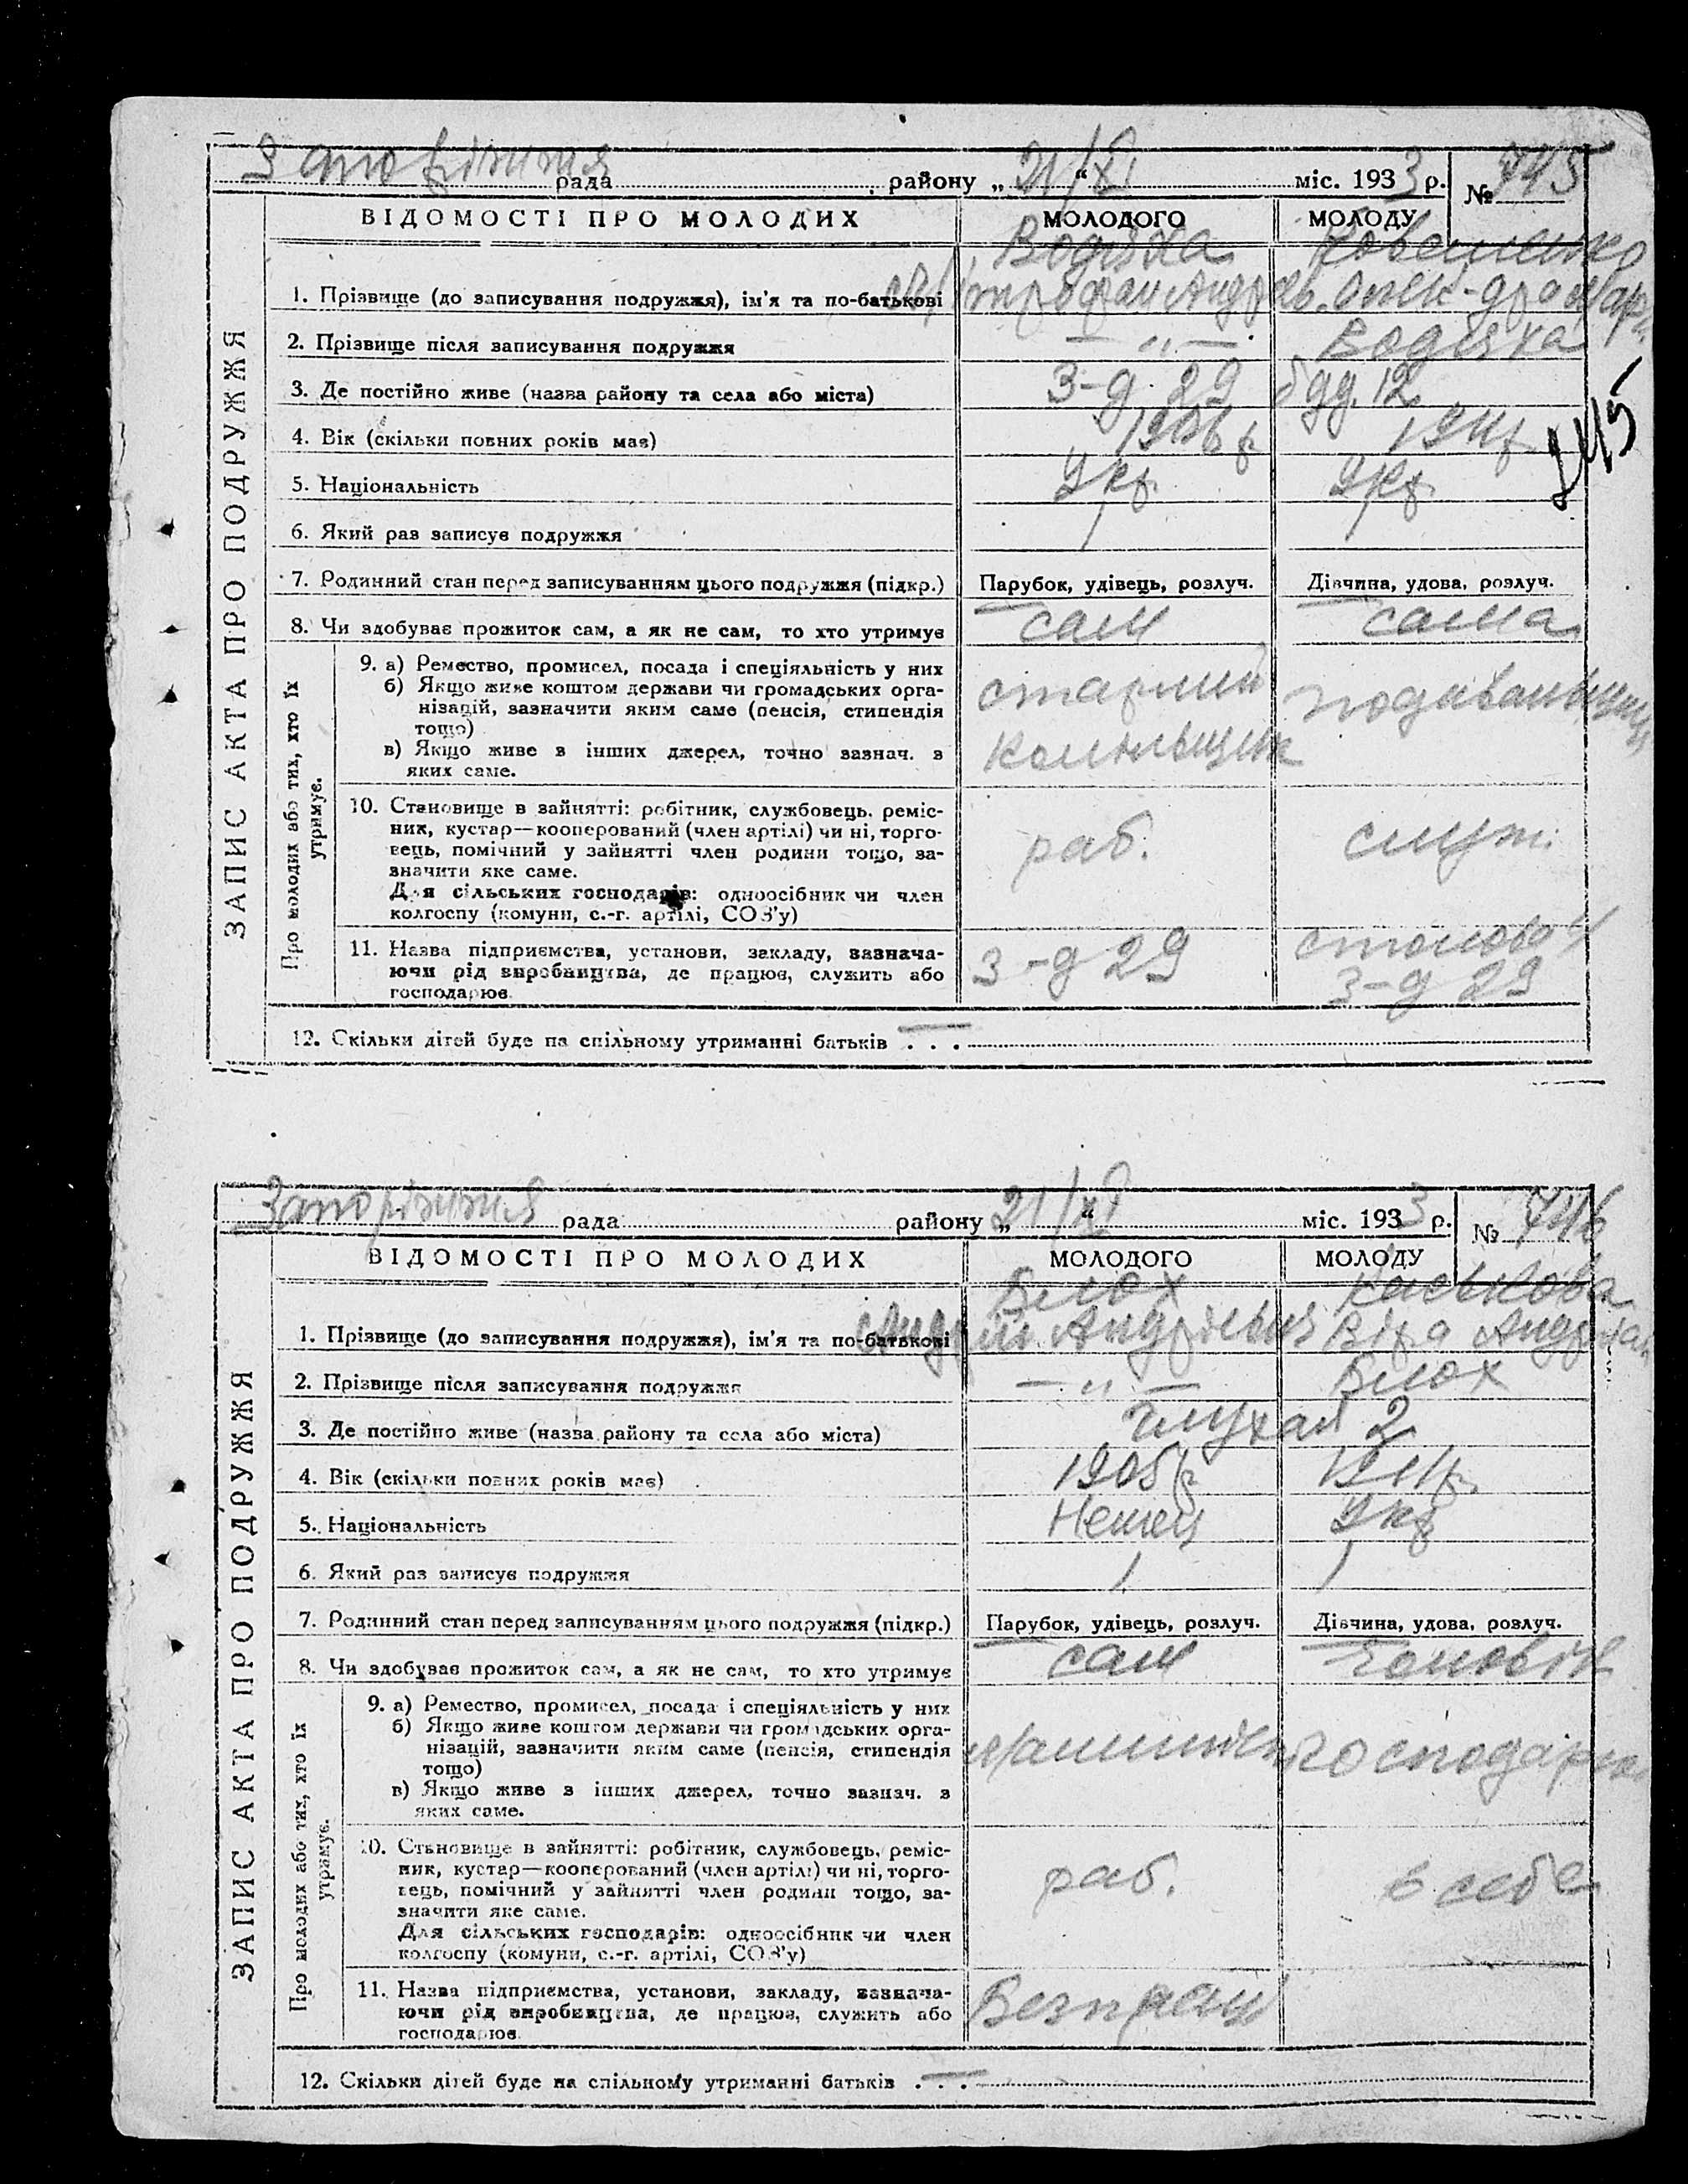 Запоріжжя рада , району „ 21/XI “ міс. 1933 р. № 745
ВІДОМОСТІ ПРО МОЛОДИХ МОЛОДОГО МОЛОДУ
Водяха
1. Прізвище (до записування подружжя), ім'я та по-батькові Митрофан Андр. Олек-дра Мар.
2. Прізвище після записування подружжя — „ — Водяха
3. Де постійно живе (назва району та села або міста) З-д 29 буд. 12
4. Вік (скільки повних років має) 1906 р 1911 р.
5. Національність Укр. Укр.
6. Який раз записує подружжя 1 1
7. Родинний стан перед записуванням цього подружжя (підкр.) Парубок, удівець, розлуч. Дівчина, удова, розлуч.
8. Чи здобуває прожиток сам, а як не сам, то хто утримує сам сама
ЗАПИС АКТА ПРО ПОДРУЖЖЯ
Про молодих або тих, хто їх утримує.
9. а) Ремество, промисел, посада і спеціяльність у них
б) Якщо живе коштом держави чи громадських орга-
нізацій, зазначити яким саме (пенсія, стипендія
тощо)
в) Якщо живе з інших джерел, точно зазнач. з
яких саме.
старший
подавальщиця
10. Становище в зайнятті: робітник, службовець, реміс-
ник, кустар—кооперований (член артілі) чи ні, торго-
вець, помічний у зайнятті член родини тощо, за-
значити яке саме.
Для сільських господарів: одноосібник чи член
колгоспу (комуни, с.-г. артілі, СОЗ'у)
раб. служ.
11. Назва підприємства, установи, закладу, зазнача-
ючи рід виробництва, де працює, служить або
господарює.
З-д 29 столова
З-д 29
12. Скільки дітей буде на спільному утриманні батьків . . . —
745
Запоріжжя рада району „ 21/XI “ міс. 1933 р. № 746
ВІДОМОСТІ ПРО МОЛОДИХ МОЛОДОГО МОЛОДУ
Блох Каськова
1. Прізвище (до записування подружжя), ім'я та по-батькові Андрій Андрієвич Віра Андр
2. Прізвище після записування подружжя — „ — Блох
3. Де постійно живе (назва району та села або міста) Глухая 2
4. Вік (скільки повних років має) 1905 р 1911 р.
5. Національність Немец Укр
6. Який раз записує подружжя 1 1
7. Родинний стан перед записуванням цього подружжя (підкр.) Парубок, удівець, розлуч. Дівчина, удова, розлуч.
8. Чи здобуває прожиток сам, а як не сам, то хто утримує сам чоловік
ЗАПИС АКТА ПРО ПОДРУЖЖЯ
Про молодих або тих, хто їх утримує.
9. а) Ремество, промисел, посада і спеціяльність у них
б) Якщо живе коштом держави чи громадських орга-
нізацій, зазначити яким саме (пенсія, стипендія
тощо)
в) Якщо живе з інших джерел, точно зазнач. з
яких саме.
машиніст
10. Становище в зайнятті: робітник, службовець, реміс-
ник, кустар—кооперований (член артілі) чи ні, торго-
вець, помічний у зайнятті член родини тощо, за-
значити яке саме.
Для сільських господарів: одноосібник чи член
колгоспу (комуни, с.-г. артілі, СОЗ'у)
раб. в себе
11. Назва підприємства, установи, закладу, зазнача-
ючи рід виробництва, де працює, служить або
господарює.
12. Скільки дітей буде на спільному утриманні батьків . . . —